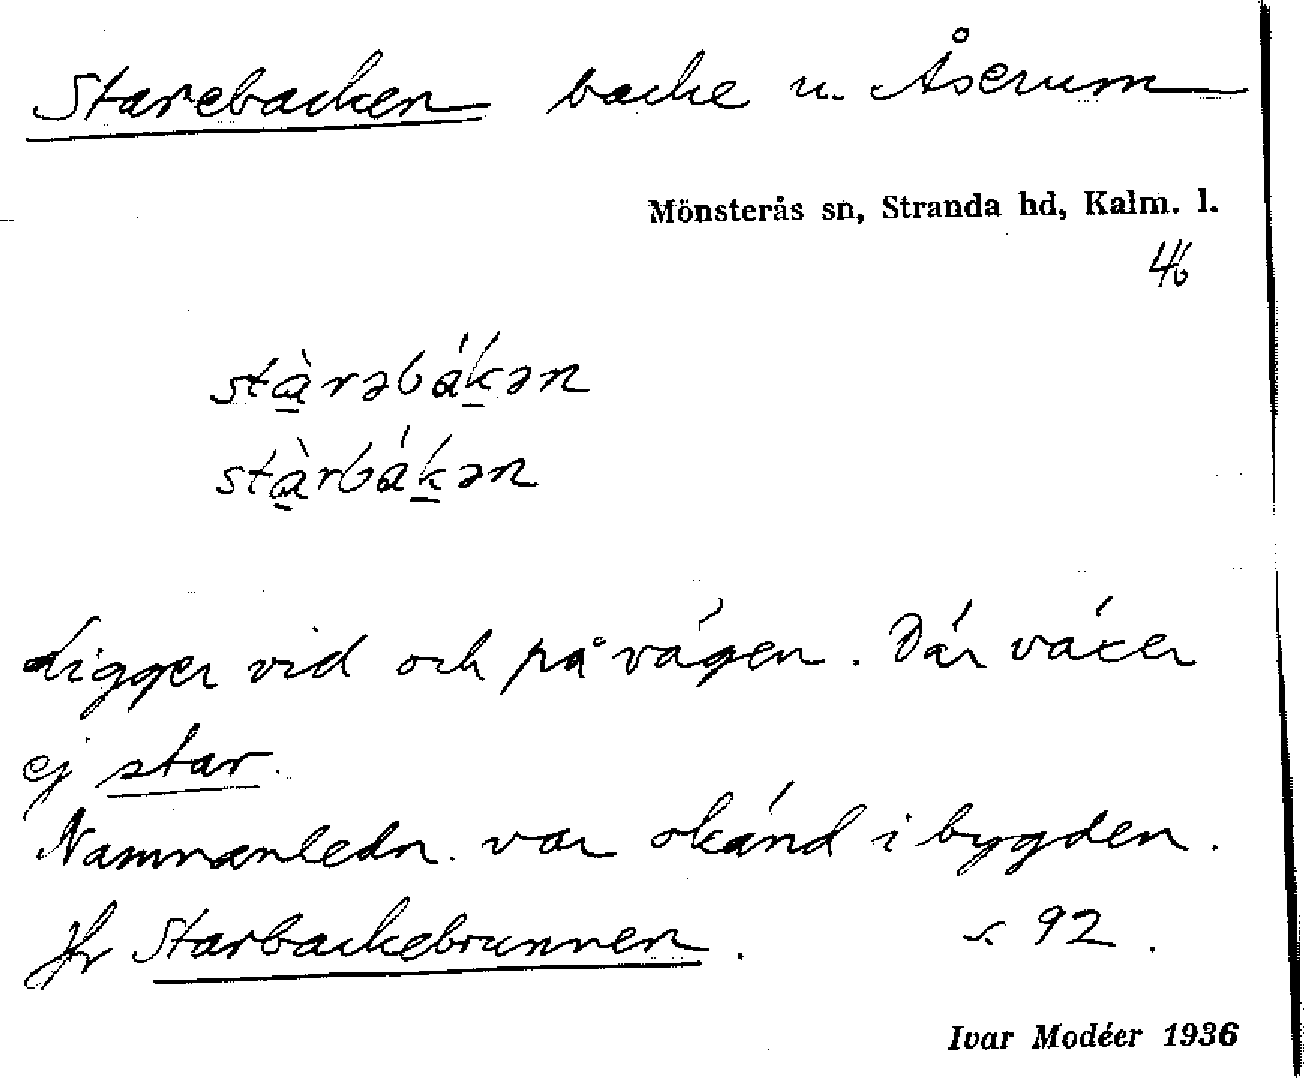 Starebacken backe u. Åserum
Mönsterås sn, Stranda hd, Kalm. l.
4/6
stàrəbákən
stàrbákən
Ligger vid och på vägen. Där växer
ej star.
Namnanledn. var okänd i bygden.
Jfr Starbackebrunnen. s. 92.
Ivar Modéer 1936